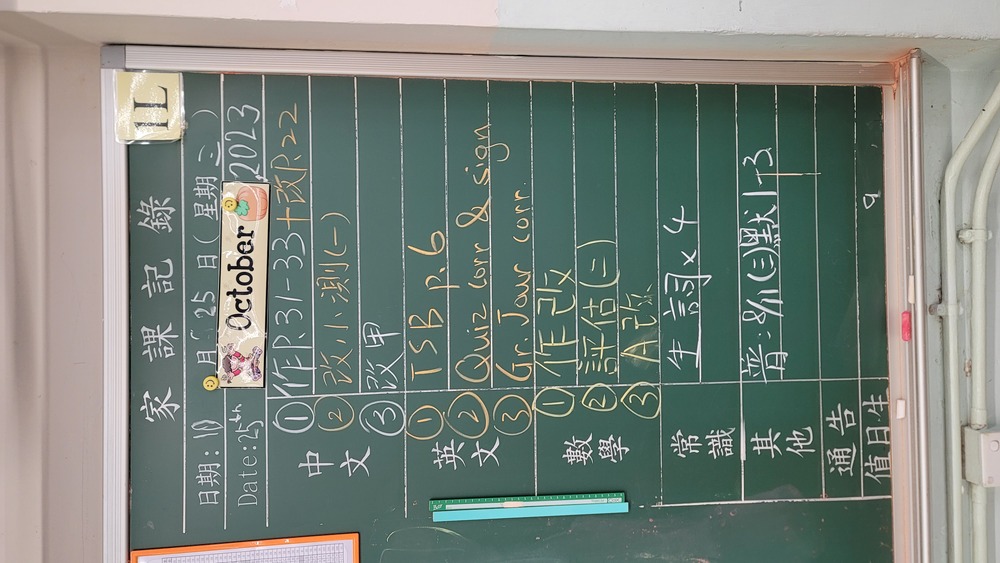 1L
家課記錄
日期:10月25日(星期三)
Date:25th October 2023
中文
①作P.31-33+改P.22
②改小測(一)
③改甲
英文
①TSB p.6
②Quiz corr & sign
③Gr. Jour corr.
數學
①作改
②評估(二)
③A改
常識
生詞x4
其他
普:8/11(三)默1-3
通告
值日生
9